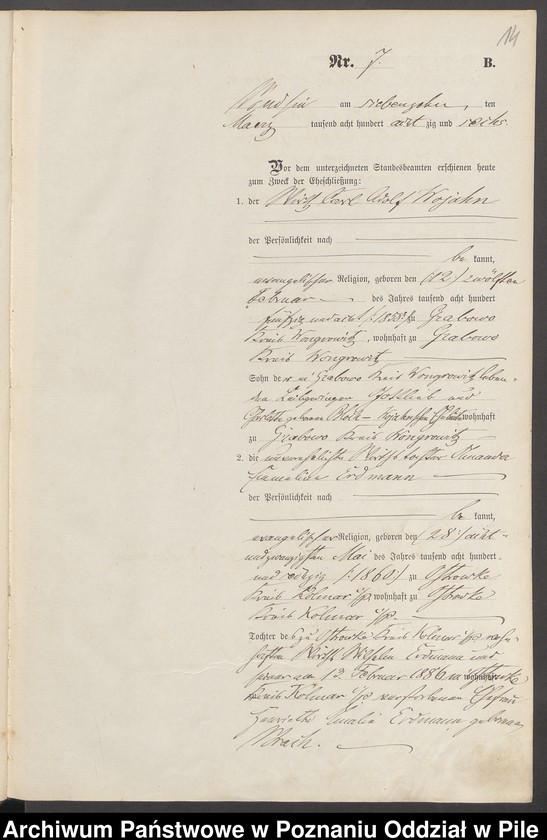 14
Nr. 7. B.
am siebenzehn, ten
Maerz tausend acht hundert acht zig und sechs.
Vor dem unterzeichneten Standesbeamten erschienen heute
zum Zweck der Eheschließung:
1. der Wirth Carl Adolf Wojahn
der Persönlichkeit nach
be kannt,
evangelischer Religion, geboren den (12) zwölften
Februar des Jahres tausend acht hundert
fünfzig und acht (:1858:) zu Grabowo
Kreis Wongrowitz, wohnhaft zu Grabowo
Kreis Wongrowitz
Sohn der in Grabowo Kreis Wongrowitz leben-
den Leibgedinger Gottlieb und
geborene wohnhaft
zu Grabowo Kreis Wongrowitz
2. die unverehelichte Wirthstochter Amanda
Erdmann
der Persönlichkeit nach
be kannt,
evangelischer Religion, geboren den (28:) acht-
undzwanzigsten Mai des Jahres tausend acht hundert
und sechszig (:1860:) zu Ostrowke
Kreis Kolmar i/p, wohnhaft zu Ostrowke
Kreis Kolmar i/p.
Tochter des zu Ostrowke Kreis Kolmar i/p wohn-
haften Wirth Wilhelm Erdmann und
am 12. Februar 1886 in Ostrowke wohnhaft
Kreis Kolmar i/p verstorbenen Ehefrau
Henriette Emilie Erdmann geborenen
Archiwum Państwowe w Poznaniu Oddział w Pile